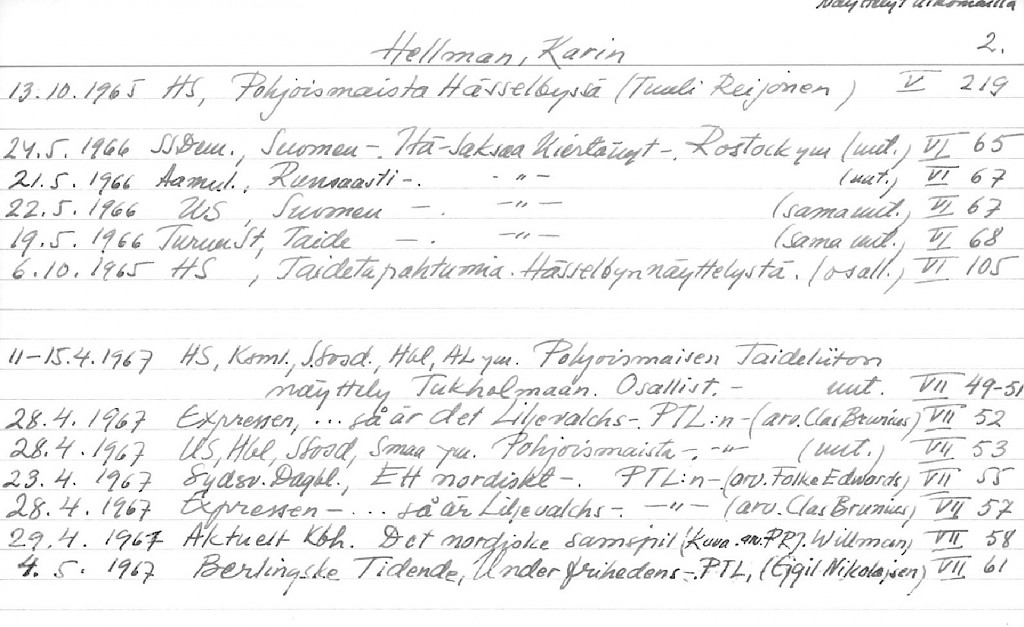 Näyttelyt ulkomailla
2.
Hellman, Karin
13.10.1965 HS, Pohjoismaista Hässelbyssä (Tuuli Reijonen) V 219
24.5.1966 SSDem., Suomen -. Itä-Saksaa kiertänyt -. Rostock ym (uut.) VI 65
21.5.1966 Aamul., Runsaasti -. -"- (uut.) VI 67
22.5.1966 US, Suomen -. -"- (sama uut.) VI 67
19.5.1966 TurunSt, Taide -. -"- (sama uut.) VI 68
6.10.1965 HS, Taidetapahtumia. Hässelbyn näyttelystä. (osall.) VI 105
11-15.4.1967 HS, Koml., SSosd., Hbl, AL ym. Pohjoismaisen Taideliiton
näyttely Tukholmaan. Osallist. - uut. VII 49-51
28.4.1967 Expressen, ... så är det Liljevalchs -. PTL:n - (arv. Clas Brunius) VII 52
28.4.1967 US, Hbl, SSosd, Smaa ym. Pohjoismaista -. -"- (uut.) VII 53
23.4.1967 Sydsv. Dagbl., Ett nordiskt -. PTL:n - (arv. Folke Edwards) VII 55
28.4.1967 Expressen - ... så är Liljevalchs -. -"- (arv. Clas Brunius) VII 57
29.4.1967 Aktuelt Kbh. Det nordiske samspil (Kuva. arv. PRJ. Willman) VII 58
4.5.1967 Berlingske Tidende, Under frihedens -. PTL, (Ejgil Nikolajsen) VII 61